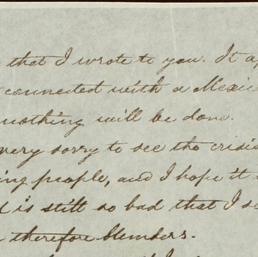 that I wrote to you. It a
connected with a Mexic
nothing will be done.
very sorry to see the crisis
ing people, and I hope it
is still so bad that I s
therefore blunders.